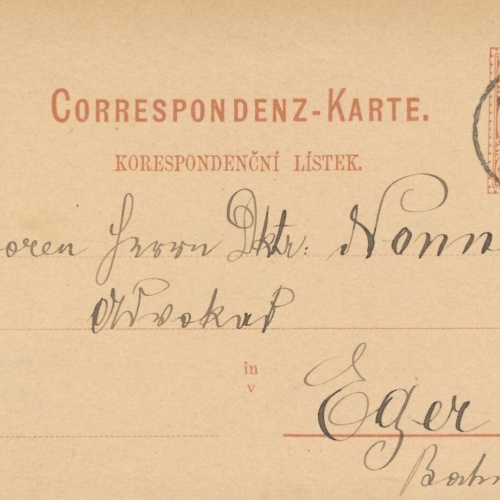 CORRESPONDENZ-KARTE.
KORESPONDENČNÍ LÍSTEK.
oren Herrn Dktr. Nonn
Advokad
in
v
Eger